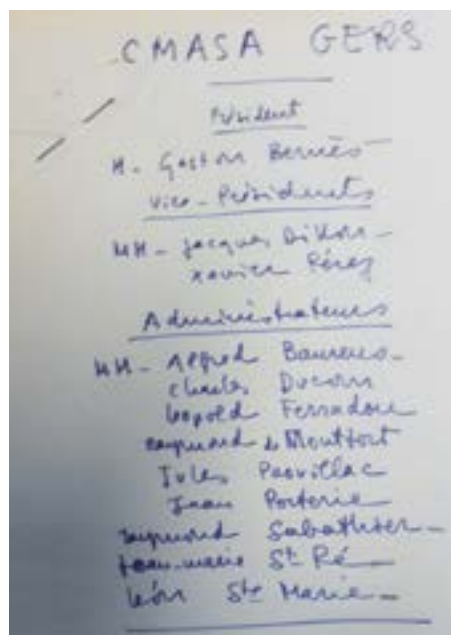 CMASA GERS
Président
M. Gaston Bernès
Vice-Présidents
MM - Jacques Dillon -
Xavier Pérez
Administrateurs
MM - Alfred
Charles Ducorn
Léopold Ferradou
Raymond de Montfort
Jules Pavillac
Jean Porterie
Raymond Sabathier -
Jean-Marie St Ré -
Léon Ste Marie -